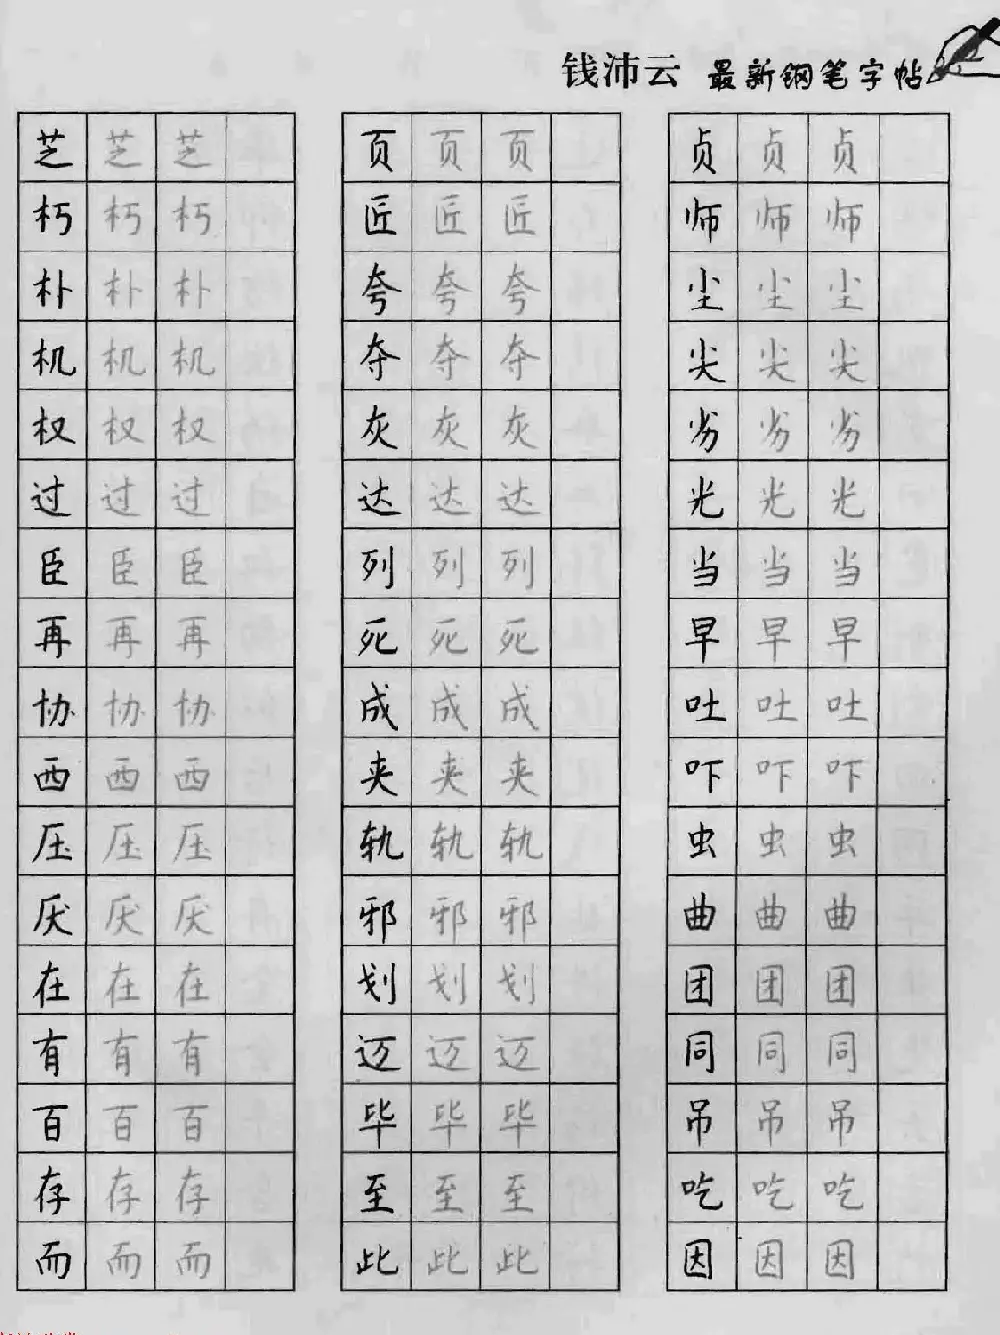 钱沛云 最新钢笔字帖
芝 芝 芝 页 页 页 贞 贞 贞
朽 朽 朽 匠 匠 匠 师 师 师
朴 朴 朴 夸 夸 夸 尘 尘 尘
机 机 机 夺 夺 夺 尖 尖 尖
权 权 权 灰 灰 灰 劣 劣 劣
过 过 过 达 达 达 光 光 光
臣 臣 臣 列 列 列 当 当 当
再 再 再 死 死 死 早 早 早
协 协 协 成 成 成 吐 吐 吐
西 西 西 夹 夹 夹 吓 吓 吓
压 压 压 轨 轨 轨 虫 虫 虫
厌 厌 厌 邪 邪 邪 曲 曲 曲
在 在 在 划 划 划 团 团 团
有 有 有 迈 迈 迈 同 同 同
百 百 百 毕 毕 毕 吊 吊 吊
存 存 存 至 至 至 吃 吃 吃
而 而 而 此 此 此 因 因 因